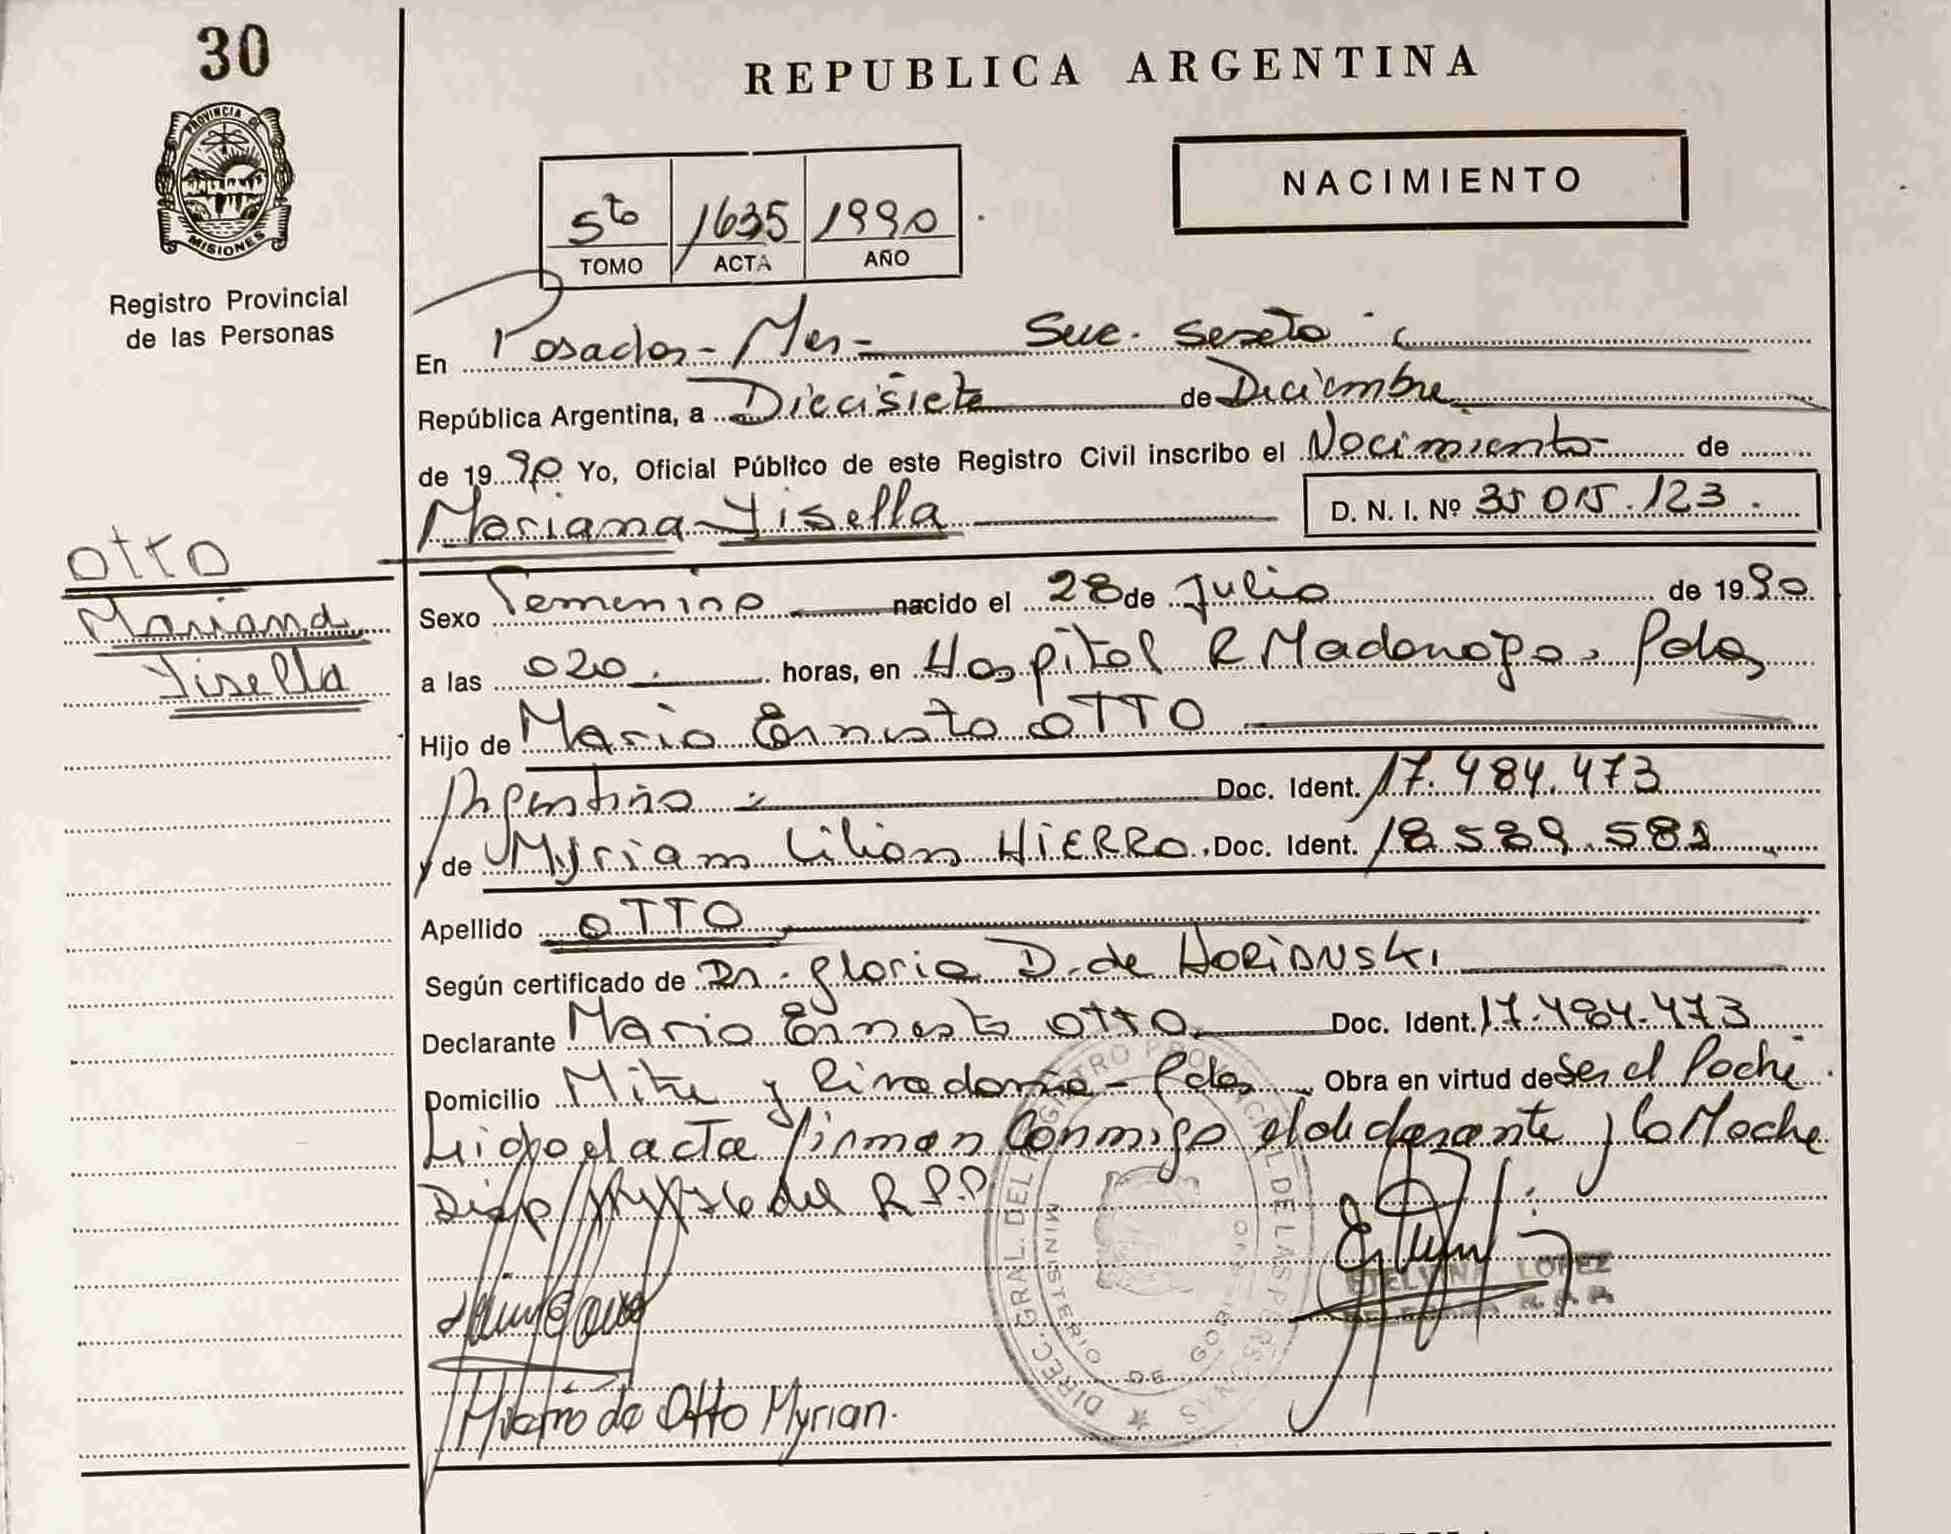 30
PROVINCIA DE
MISIONES
Registro Provincial
de las Personas
REPUBLICA ARGENTINA
NACIMIENTO
5to 1635 1990
TOMO ACTA AÑO
En Posadas - Mnes - Secc. Sexta
República Argentina, a Diecisiete de Diciembre
de 1990 Yo, Oficial Público de este Registro Civil inscribo el Nacimiento de
Mariana Yisella D. N. I. Nº 35 015.123.
OTTO
Mariana
Yisella
Sexo Femenino nacido el 28 de Julio de 1990
a las 020. horas, en Hospital R Madariaga, Pdas
Hijo de Mario Ernesto OTTO
Argentino Doc. Ident. 17.484.473
y de Myriam Lilian HIERRO. Doc. Ident. 18.589.581
Apellido OTTO
Según certificado de Dra. Gloria D. de HORIANSKI
Declarante Mario Ernesto OTTO Doc. Ident. 17.484.473
Domicilio Mitre y Rivadavia - Pdas Obra en virtud de Ser el Padre
Leida el acta firman Conmigo el declarante y la Madre
Disp del R.P.P.
DIREC. GRAL. DEL REGISTRO PROVINCIAL DE LAS PERSONAS
MINISTERIO DE GOB
ETELVINA LOPEZ
DELEGADA R.P.P.
Hierro de Otto Myrian.